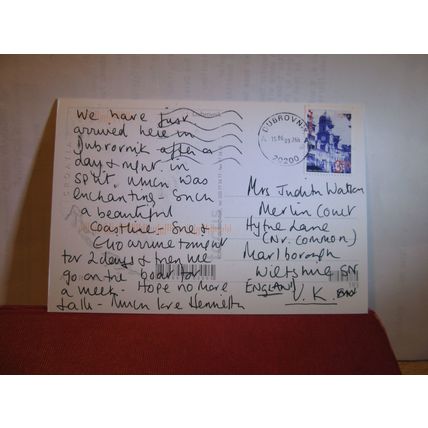 We have just
arrived here in
Dubrovnik after a
day & night in
Split, which was
enchanting - such
a beautiful
Coastline. Sue &
arrive tonight
for 2 days & then we
go on the boat for
a week - Hope no more
falls - Much love Henrietta
CROATIA
DUBROVNIK
20200
Mrs Judith Watson
Merlin Court
Hythe Lane
(Nr. Common)
Marlborough
Wiltshire SN
ENGLAND
U.K.